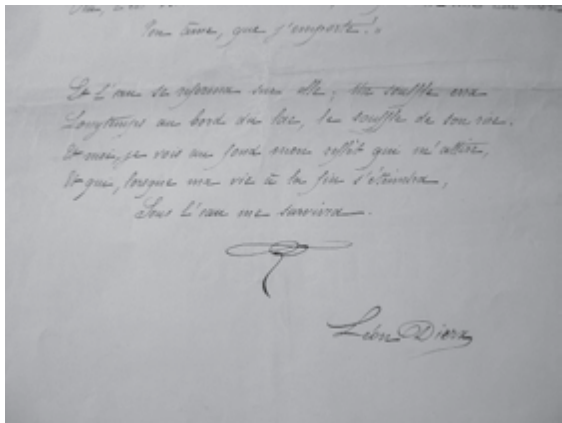 Ton âme, que j'emporte !"
Et l'eau se referma sur elle ; Un souffle erra
Longtemps au bord du lac, le souffle de son rire.
Et moi, je vois au fond mon reflet qui m'attire,
Et qui, lorsque ma vie à la fin s'éteindra,
Sous l'eau me survivra.
Léon Dierx